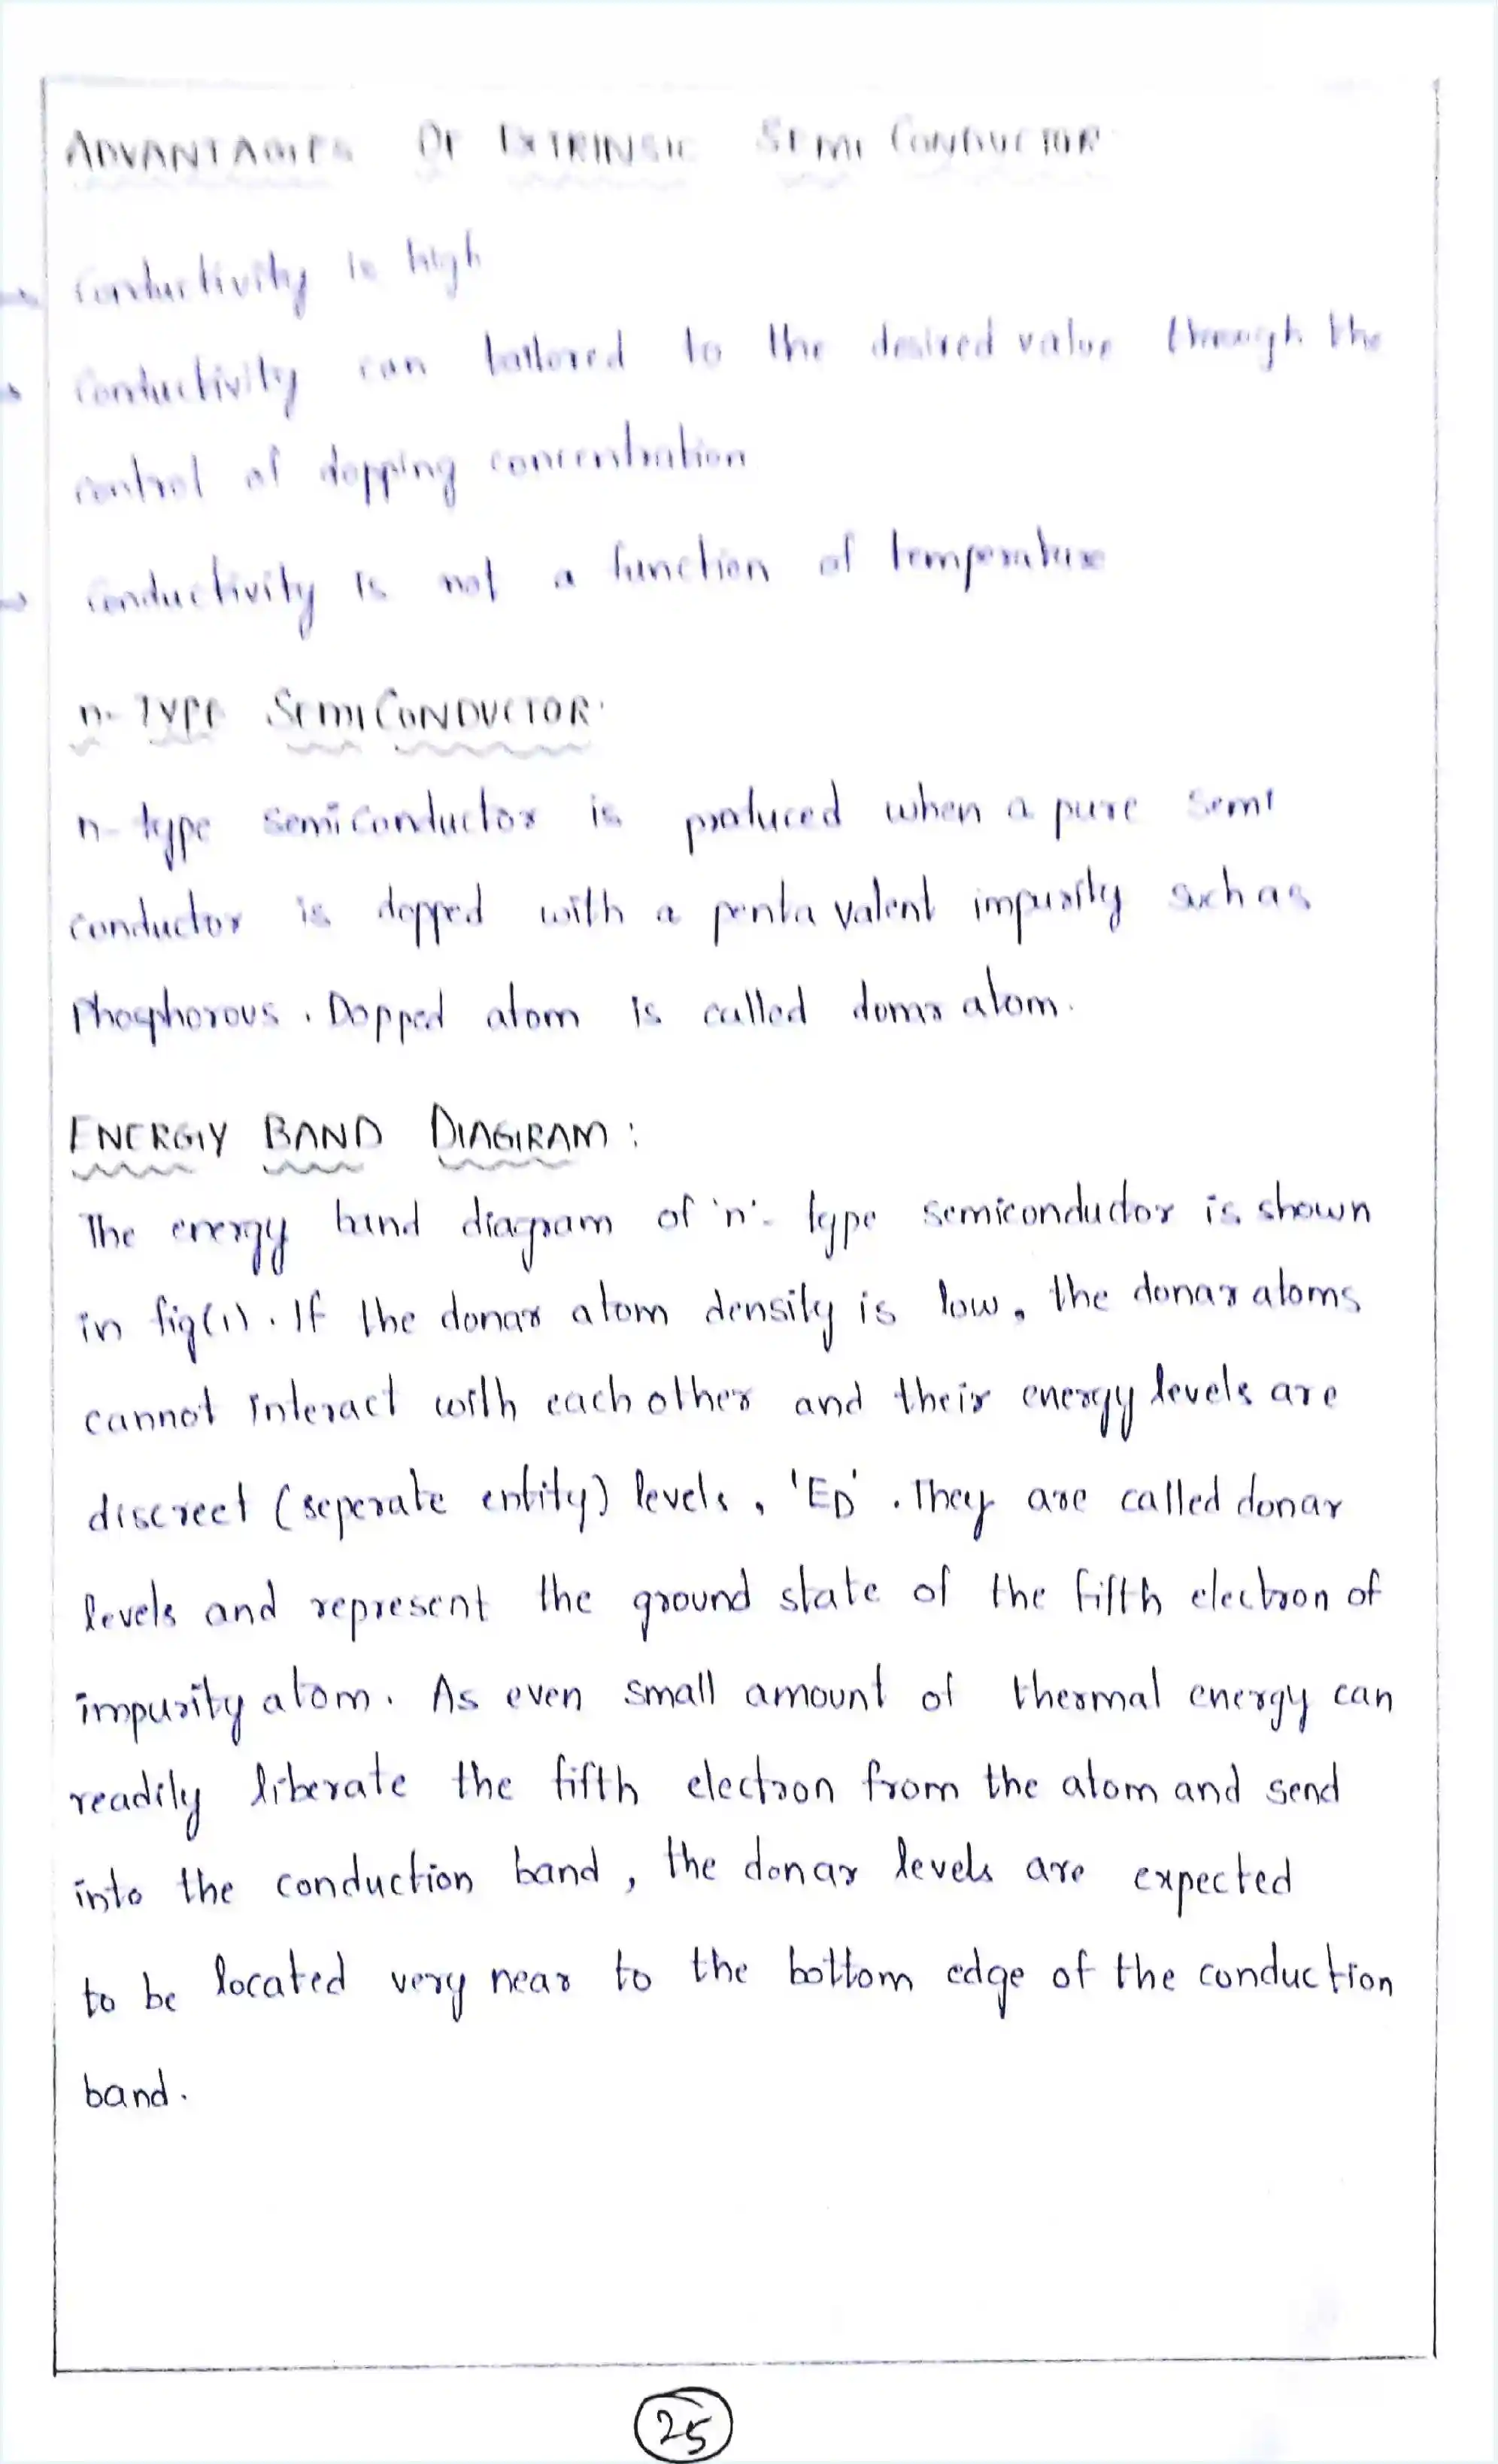 ADVANTAGES OF EXTRINSIC SEMI CONDUCTOR
→ conductivity is high
→ conductivity can tailored to the desired value through the
control of dopping concentration
→ conductivity is not a function of temperature
n-TYPE SEMI CONDUCTOR:
n-type semiconductor is produced when a pure semi
conductor is dopped with a penta valent impurity such as
Phosphorous. Dopped atom is called donar atom.
ENERGY BAND DIAGRAM:
The energy band diagram of 'n'- type semiconductor is shown
in fig(1). If the donar atom density is low, the donar atoms
cannot interact with each other and their energy levels are
discreet (seperate entity) levels, 'ED'. They are called donar
levels and represent the ground state of the fifth electron of
impurity atom. As even small amount of thermal energy can
readily liberate the fifth electron from the atom and send
into the conduction band, the donar levels are expected
to be located very near to the bottom edge of the conduction
band.
25